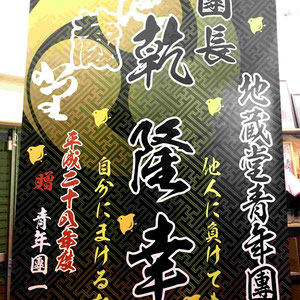 地蔵堂青年團
他人に負けても
團長
乾隆幸
自分にまける
平成二十八年度
贈
青年團一
蔵堂